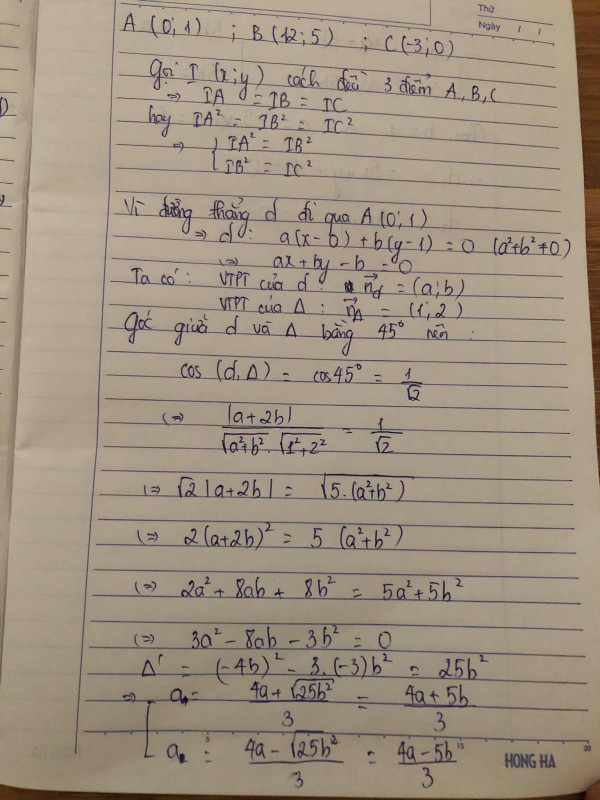 Thứ
Ngày / /
A (0;1) ; B(12;5) ; C(-3;0)
Gọi I (x;y) cách đều 3 điểm A,B,C
⇒ IA = IB = IC
hay IA² = IB² = IC²
⇒ { IA² = IB²
IB² = IC²
Vì đường thẳng d đi qua A(0;1)
⇒ d: a(x-0) + b(y-1) = 0 (a²+b²≠0)
(⇒ ax+by-b = 0
Ta có: VTPT của d: n⃗d = (a;b)
VTPT của Δ: n⃗Δ = (1;2)
Góc giữa d và Δ bằng 45° nên:
cos (d,Δ) = cos45° = 1/√2
(⇒ |a+2b| / √a²+b² . √1²+2² = 1/√2
(⇒ √2 |a+2b| = √5.(a²+b²)
(⇒ 2(a+2b)² = 5 (a²+b²)
(⇒ 2a² + 8ab + 8b² = 5a²+5b²
(⇒ 3a² - 8ab - 3b² = 0
Δ' = (-4b)² - 3.(-3)b² = 25b²
⇒ [ a₁ = 4a+√25b² / 3 = 4a+5b / 3
a₂ = 4a-√25b² / 3 = 4a-5b / 3
5 15 20
HONG HA